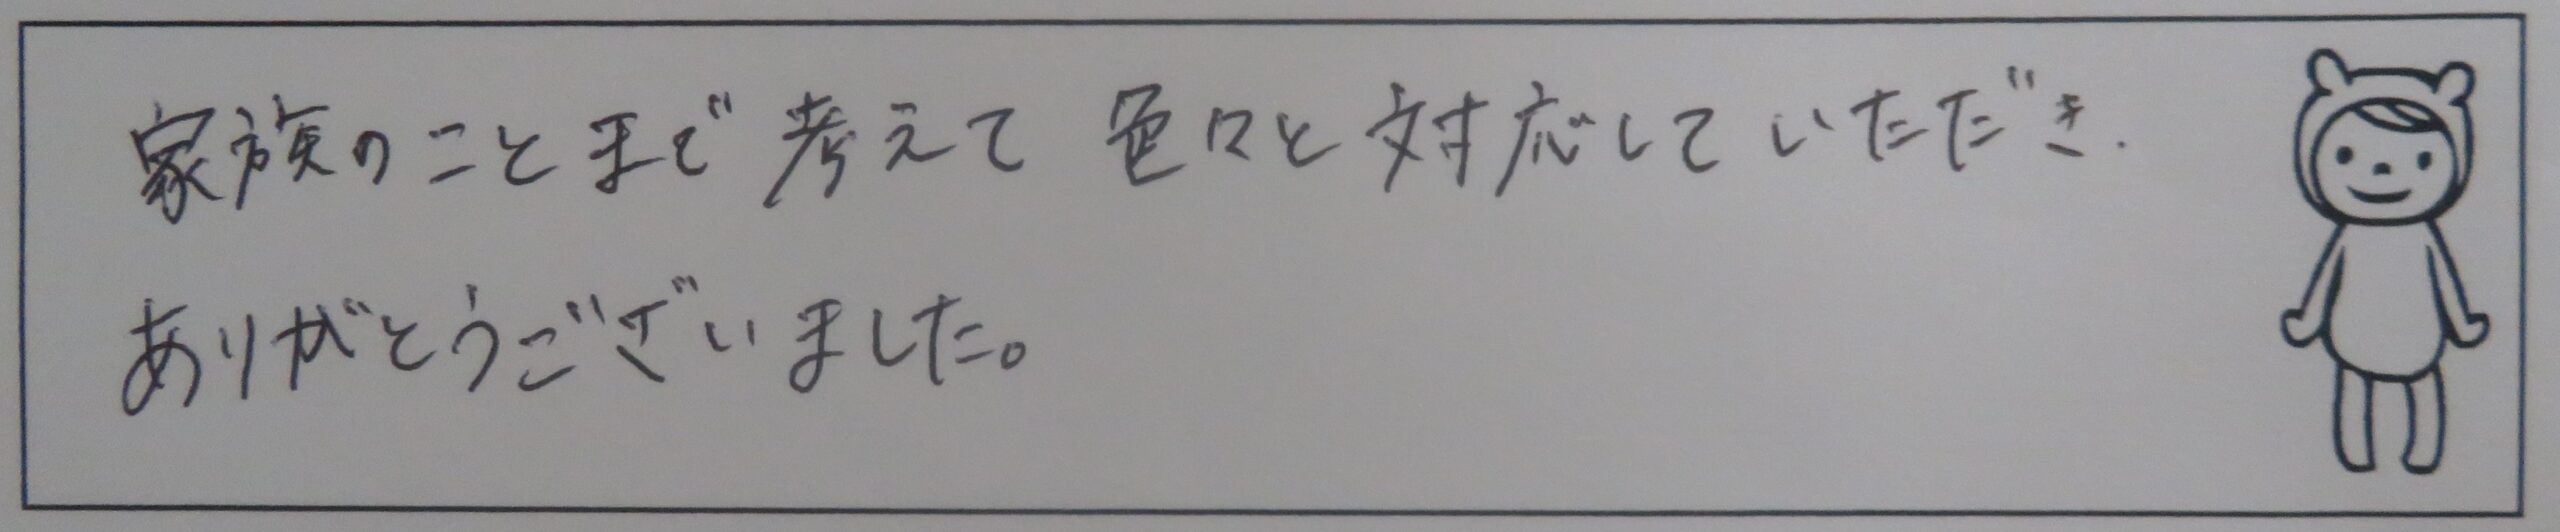 家族のことまで考えて 色々と対応していただき、
ありがとうございました。